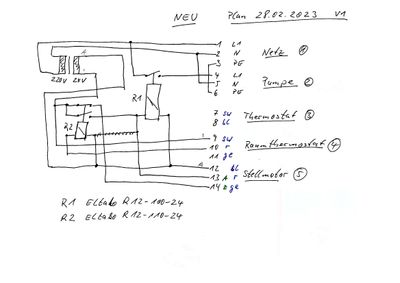 NEU Plan 28.02.2023 V1
1 L1
2 N Netz ①
3 PE
4 L1
5 N Pumpe ②
6 PE
220V 24V
R1
7 sw Thermostat ③
8 bl
R2
9 sw
10 r Raumthermostat ④
11 ge
12 bl
13 r Stellmotor ⑤
14 ge
R1 Eltako R12-100-24
R2 Eltako R12-110-24